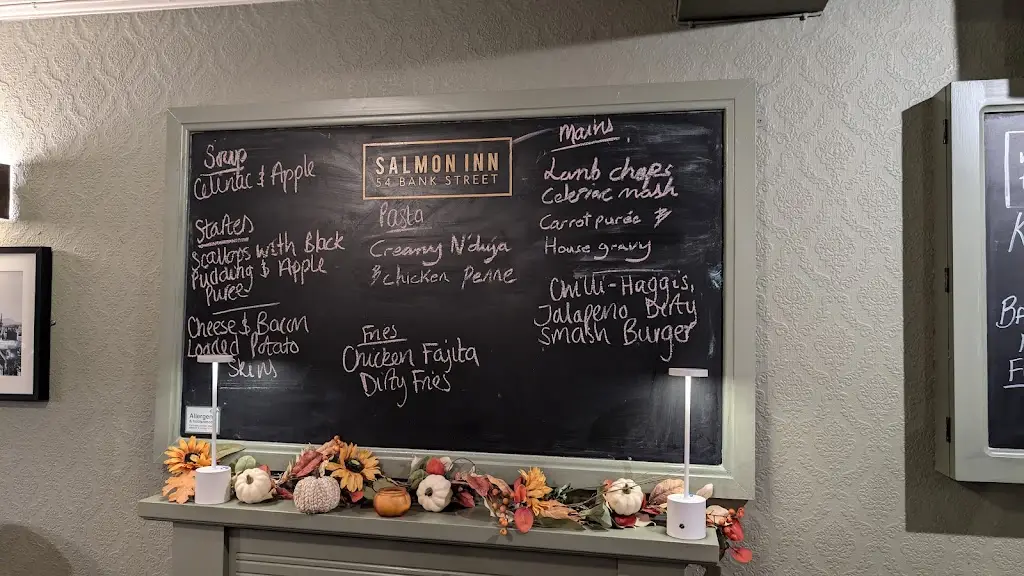 Soup
Celeriac & Apple
Starters
Scallops with Black
Pudding & Apple
Puree
Cheese & Bacon
Loaded Potato
Skins
SALMON INN
54 BANK STREET
Pasta
Creamy N'duja
& chicken Penne
Fries
Chicken Fajita
Dirty Fries
Mains
Lamb chops
Celeriac mash
Carrot purée &
House gravy
Chilli-Haggis,
Jalapeno Dirty
Smash Burger
Allergen